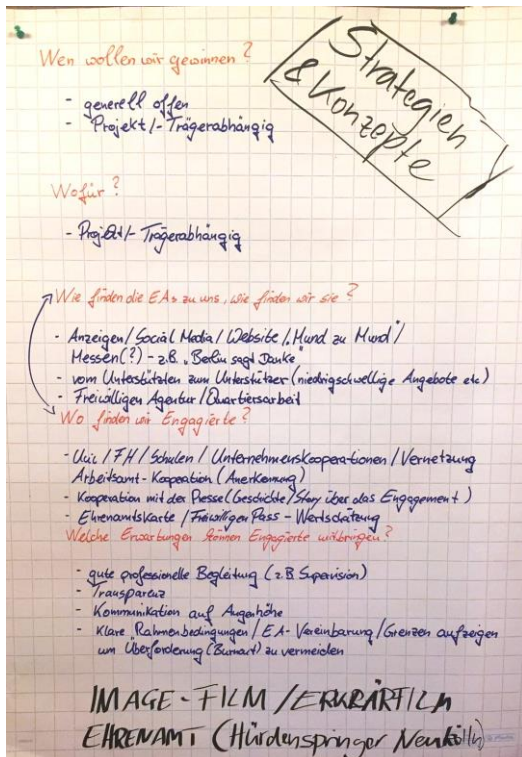 Strategien
& Konzepte
Wen wollen wir gewinnen?
- generell offen
- Projekt/-Trägerabhängig
Wofür?
- Projekt/-Trägerabhängig
Wie finden die EAs zu uns, wie finden wir sie?
- Anzeigen/Social Media/Website/„Mund zu Mund"/
Messen(?) - z.B. „Berlin sagt Danke"
- vom Unterstützten zum Unterstützer (niedrigschwellige Angebote etc)
- Freiwilligen Agentur/Quartiersarbeit
Wo finden wir Engagierte?
- Uni/FH/Schulen/Unternehmenskooperationen/Vernetzung
Arbeitsamt-Kooperation (Anerkennung)
- Kooperation mit der Presse (Geschichte/Story über das Engagement)
- Ehrenamtskarte/Freiwilligen Pass - Wertschätzung
Welche Erwartungen können Engagierte mitbringen?
- gute professionelle Begleitung (z.B. Supervision)
- Transparenz
- Kommunikation auf Augenhöhe
- Klare Rahmenbedingungen/EA-Vereinbarung/Grenzen aufzeigen
um Überforderung (Burnout) zu vermeiden
IMAGE-FILM/ERKLÄRFILM
EHRENAMT (Hürdenspringer Neukölln)